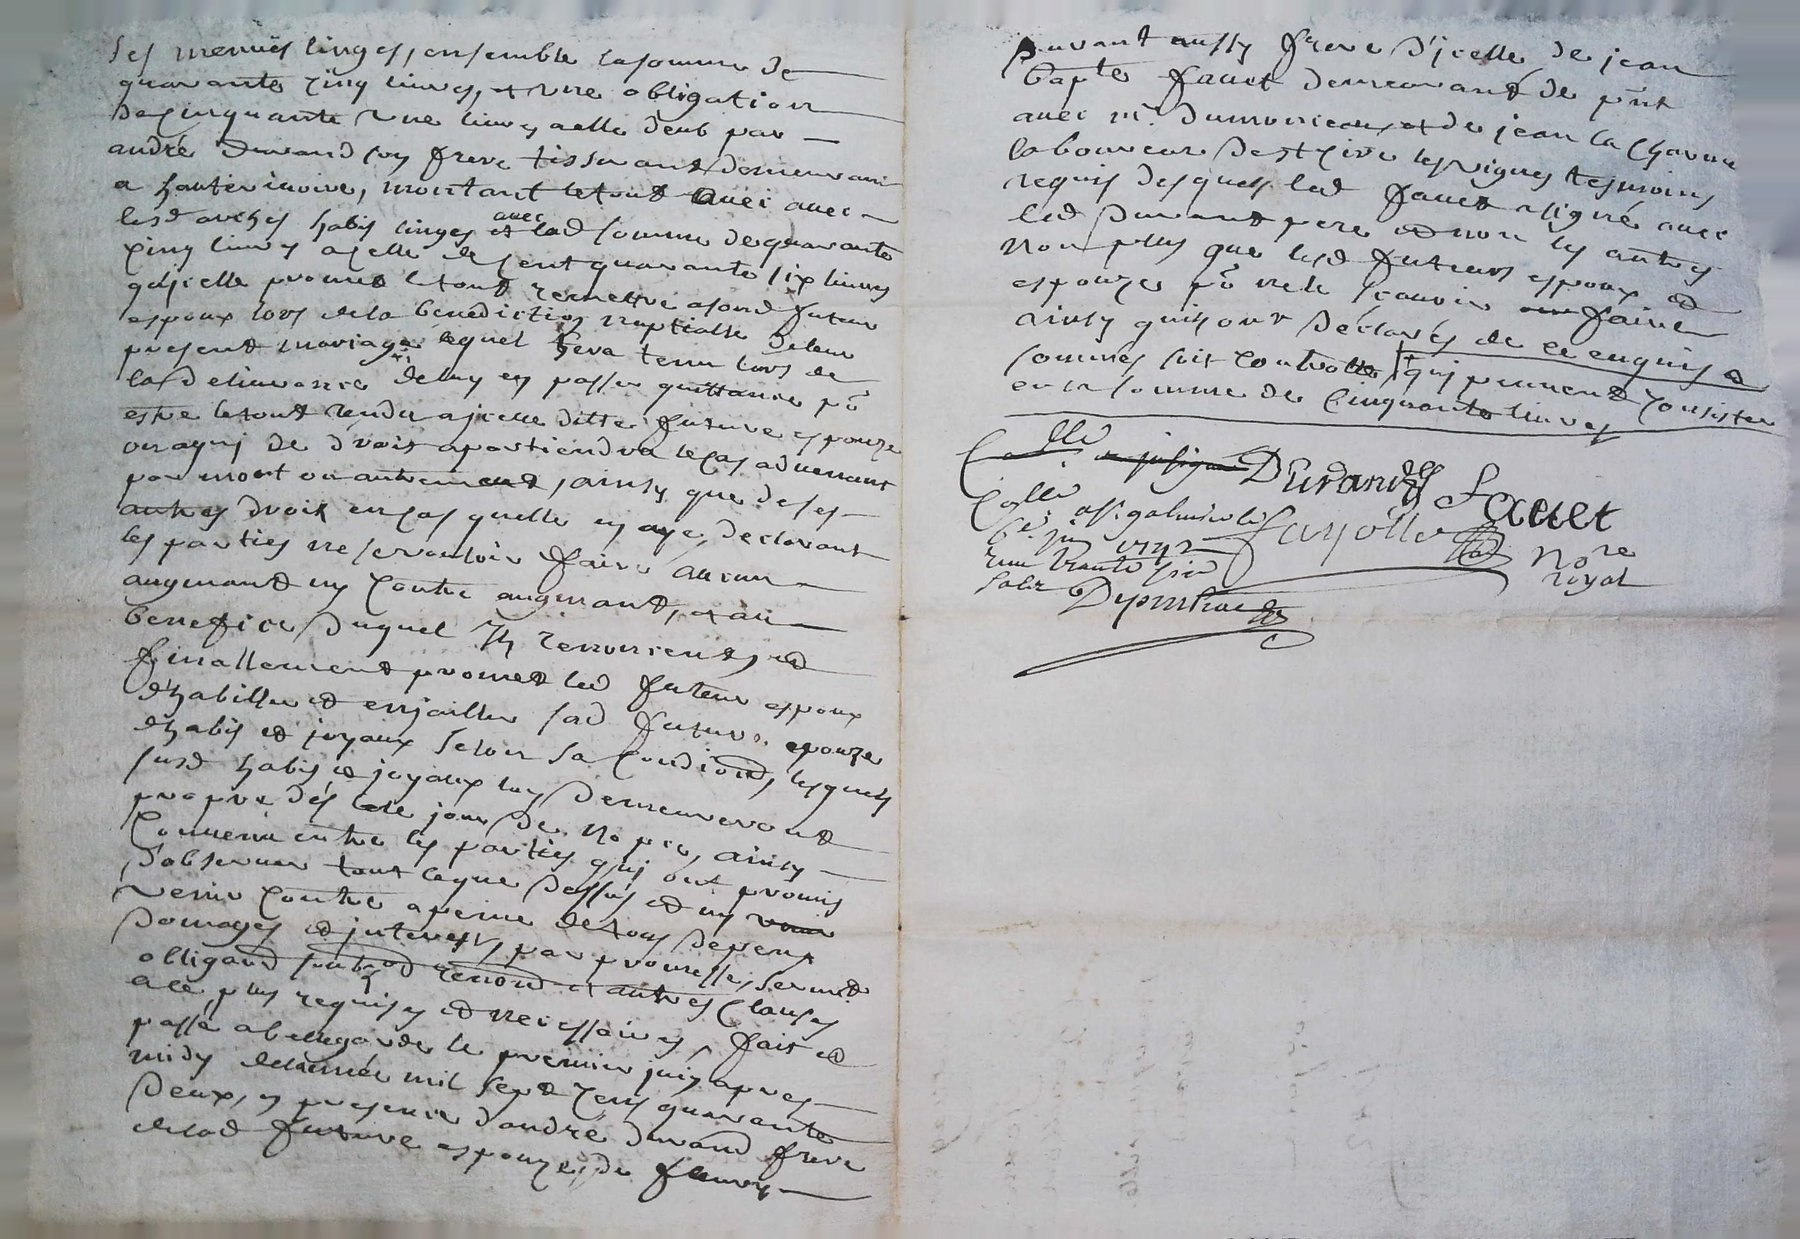 ses menües linges, ensemble la somme de
quarante cinq livres, et une obligation
de cinquante une livres a elle deub par
andré durand son frere tisserant demeurant
a hauterivoire, montant le tout avec
lesd arches habis linges et avec lad somme de quarante
cinq livres a celle de cent quarante six livres
qu'icelle promet le tout remettre a sond futur
espoux lors de la benediction nuptialle de leur
present mariage lequel sera tenu lors de
lad delivrance de luy en passer quittance pō
estre le tout rendu a jcelle ditte future espouze
ou a qui de droit apartiendra le cas advenant
par mort ou autrement, ainsy que de ses
autres droix en cas quelle en aye, declarant
les parties ne se vouloir faire aucun
augmant ny contre augmant, et au
benefice duquel Ils renoncent, et
finallement promet led futur espoux
d'habiller et enjailler sad future epouze
d'habis et joyaux selon sa condiond, lesquels
susd habis et joyaux luy demeureront
propre dés le jour de nopces, ainsy
convenu entre les parties qui ont promis
d'observer tout ce que dessus et ny
venir contre a peine de tous depens
domages et interests, par promesses, sermt
obligaōn soubz on renonōn et autres clauses
a ce plus requises et necessaires, fait et
passé a bellegarde le premier juin apres
midy de l'année mil sept cens quarante
deux, en presence d'andré durand frere
de lad future espouze, de fleury
Durant aussy frere d'jcelle de jean
bapte fauet demeurant de pñt
avec mr. dumonceau, et de jean la charme
laboureur de st cire les vignes tesmoins
requis desquels led fauet a signé avec
led durant pere et non les autres
non plus que lesd futurs espoux et
espouze pō ne le scavoir faire
ainsy quils ont declarés de ce enquis et
sommés soit controllé qui peuvent consister
en la somme de cinquante livres
Collé
DURAND Fauet
Collé a st galmier le
Fayolle Nore
royal